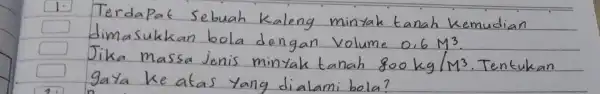 1. Terdapat sebuah kaleng minyak tanah kemudian
dimasukkan bola dengan volume 0,6 M³.
Jika massa jenis minyak tanah 800 kg/M³. Tentukan
gaya ke atas yang dialami bola?